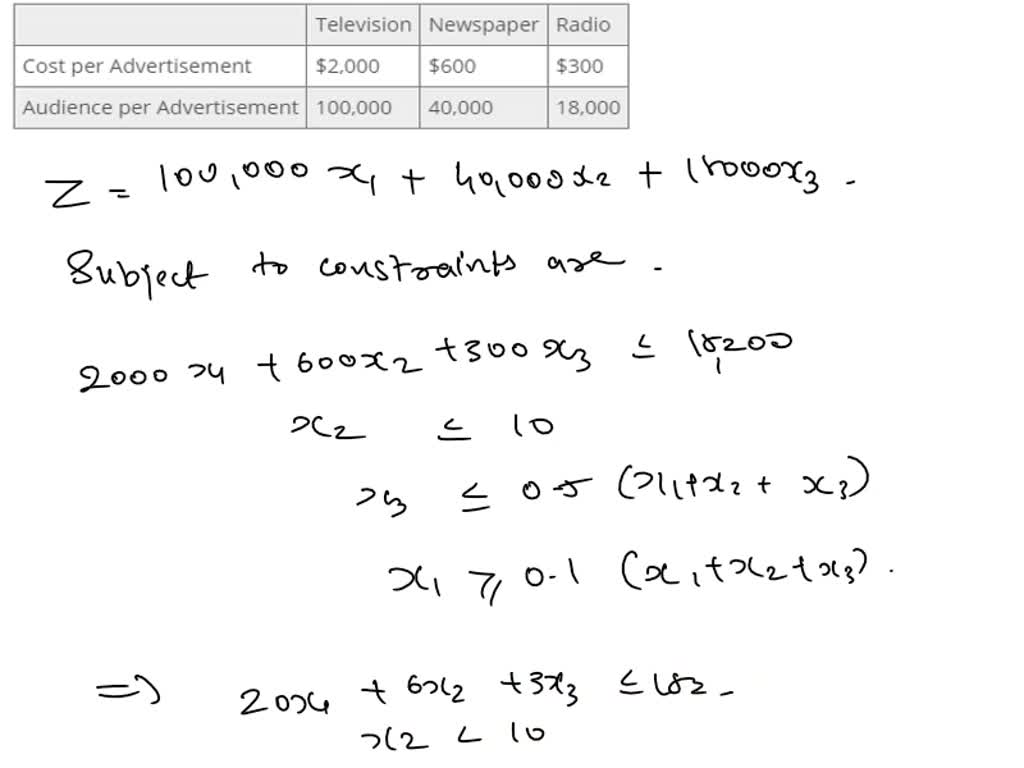 Television Newspaper Radio
Cost per Advertisement $2,000 $600 $300
Audience per Advertisement 100,000 40,000 18,000
Z = 100,000 x₁ + 40,000x₂ + 18000x₃ .
Subject to constraints are .
2000 x₁ + 600x₂ + 300 x₃ ≤ 18,200
x₂ ≤ 10
x₃ ≤ 0.5 (x₁ + x₂ + x₃)
x₁ ≥ 0.1 (x₁ + x₂ + x₃) .
⇒ 20x₁ + 6x₂ + 3x₃ ≤ 182 -
x₂ < 10